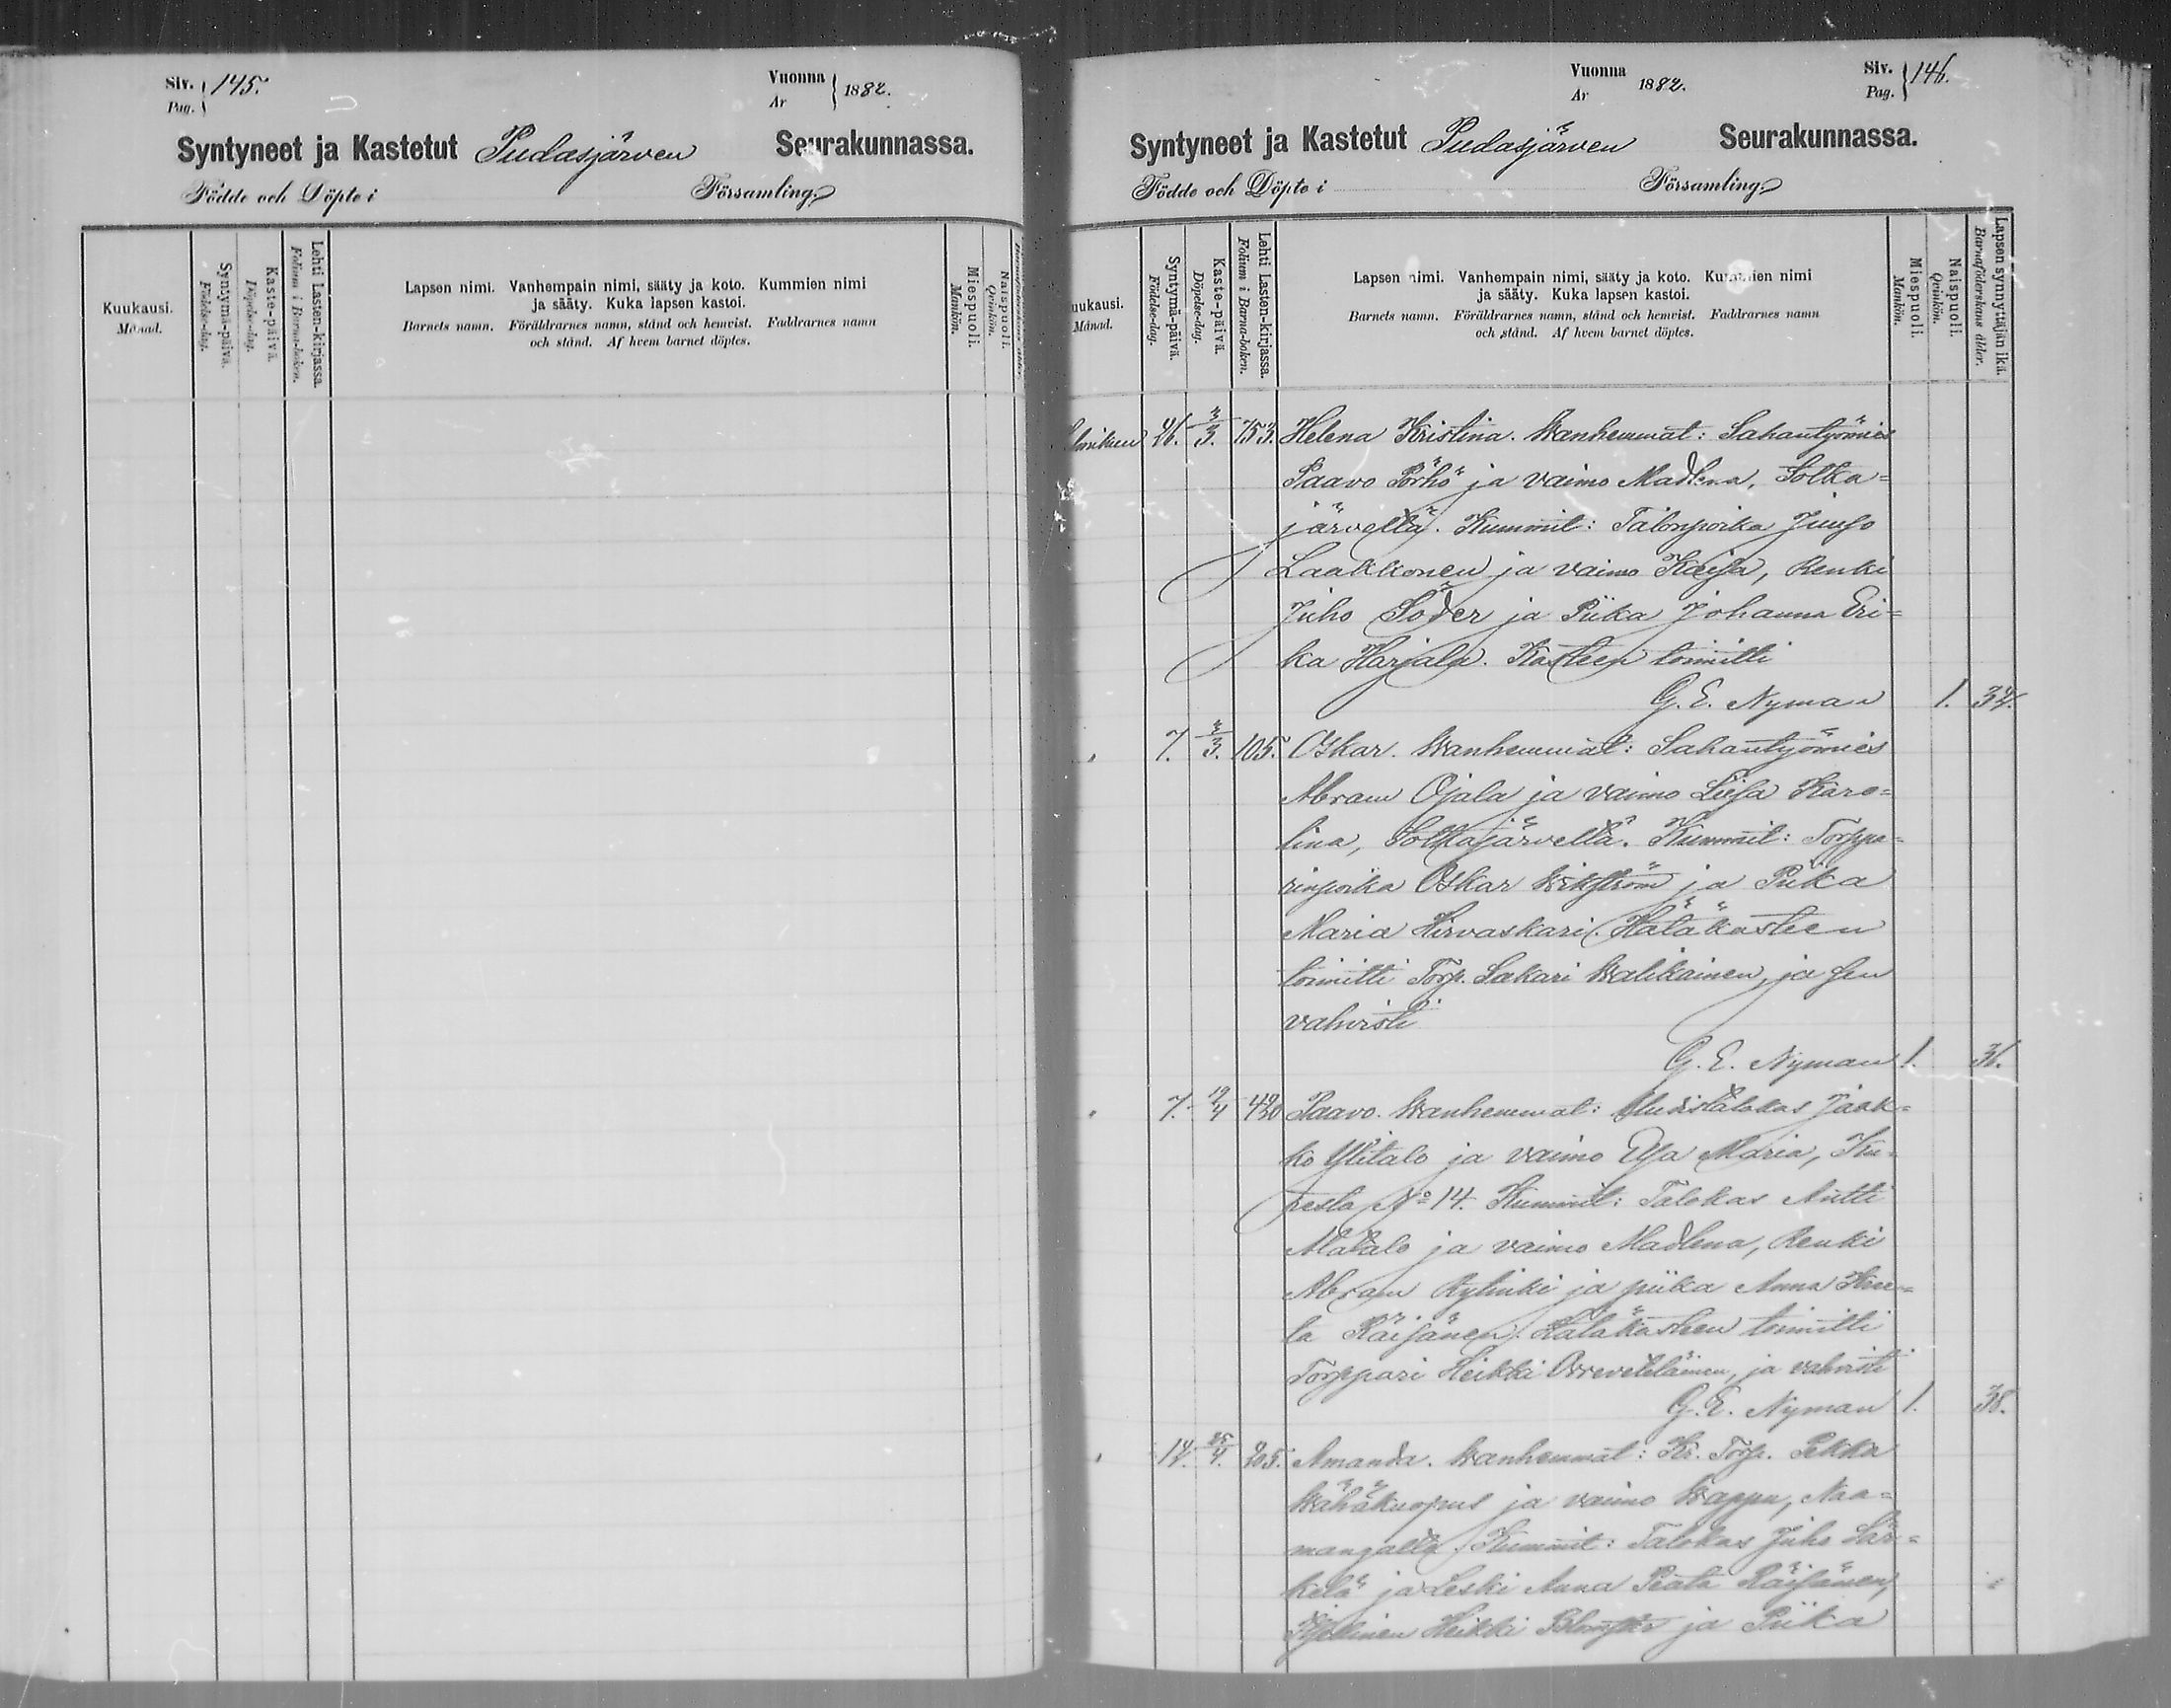 Siv. 145.
Pag.
Vuonna 1882.
Ar
Syntyneet ja Kastetut Pudasjärven Seurakunnassa.
Födde och Döpte i Församling.
Kuukausi.
Månad.
Syntymä-päivä.
Födelse-dag.
Kaste-päivä.
Döpelse-dag.
Lehti Lasten-kirjassa.
Folium i Barna-boken.
Lapsen nimi. Vanhempain nimi, sääty ja koto. Kummien nimi
ja sääty. Kuka lapsen kastoi.
Barnets namn. Föräldrarnes namn, stånd och hemvist. Faddrarnes namn
och stånd. Af hvem barnet döptes.
Miespuoli.
Mankön.
Naispuoli.
Qvinkön.
Vuonna 1882.
Ar
Siv. 146.
Pag.
Syntyneet ja Kastetut Pudasjärven Seurakunnassa.
Födde och Döpte i Församling.
uukausi.
Månad.
Syntymä-päivä.
Födelse-dag.
Kaste-päivä.
Döpelse-dag.
Lehti Lasten-kirjassa.
Folium i Barna-boken.
Lapsen nimi. Vanhempain nimi, sääty ja koto. Kummien nimi
ja sääty. Kuka lapsen kastoi.
Barnets namn. Föräldrarnes namn, stånd och hemvist. Faddrarnes namn
och stånd. Af hvem barnet döptes.
Miespuoli.
Mankön.
Naispuoli.
Qvinkön.
Lapsen synnyttäjän ikä.
Barnaföderskans ålder.
26. 3/3. 753. Helena Kristina. Wanhemmat: Sahantyömies
Paavo Pörhö ja vaimo Madlena, Sotka=
järvellä. Kummit: Talonpoika Junso
Laakkonen ja vaimo Kaisa, Renki
Juho Söder ja Piika Johanna Eri=
ka Harjala. Kasteen toimitti
G. E. Nyman 1. 34.
7. 3/3. 105. Oskar. Wanhemmat: Sahantyömies
Abram Ojala ja vaimo Liisa Karo=
lina, Sotkajärvellä. Kummit: Torppa=
rinpoika Oskar Wikström ja Piika
Maria Hirvaskari. Hätäkasteen
toimitti Torp. Sakari Walikainen, ja sen
vahvisti
G. E. Nyman 1. 36.
7. 19/4 420 Paavo. Wanhemmat: Uudistalokas Jaak=
ko Ylitalo ja vaimo Elsa Maria, Ku=
resta No 14. Kummit: Talokas Antti
Alatalo ja vaimo Madlena, Renki
Abram Rytinki ja piika Anna Kree=
ta Räisänen. Hätäkasteen toimitti
Torppari Heikki Orreveteläinen, ja vahvisti
G. E. Nyman 1. 38.
14. 25/4. 205. Amanda. Wanhemmat: Kr. Torp. Pekka
Wähäkuopus ja vaimo Wappu, Naa=
mangalla. Kummit: Talokas Juho Sär=
kelä ja Leski Anna Peata Räisänen,
Itsellinen Heikki ja Piika